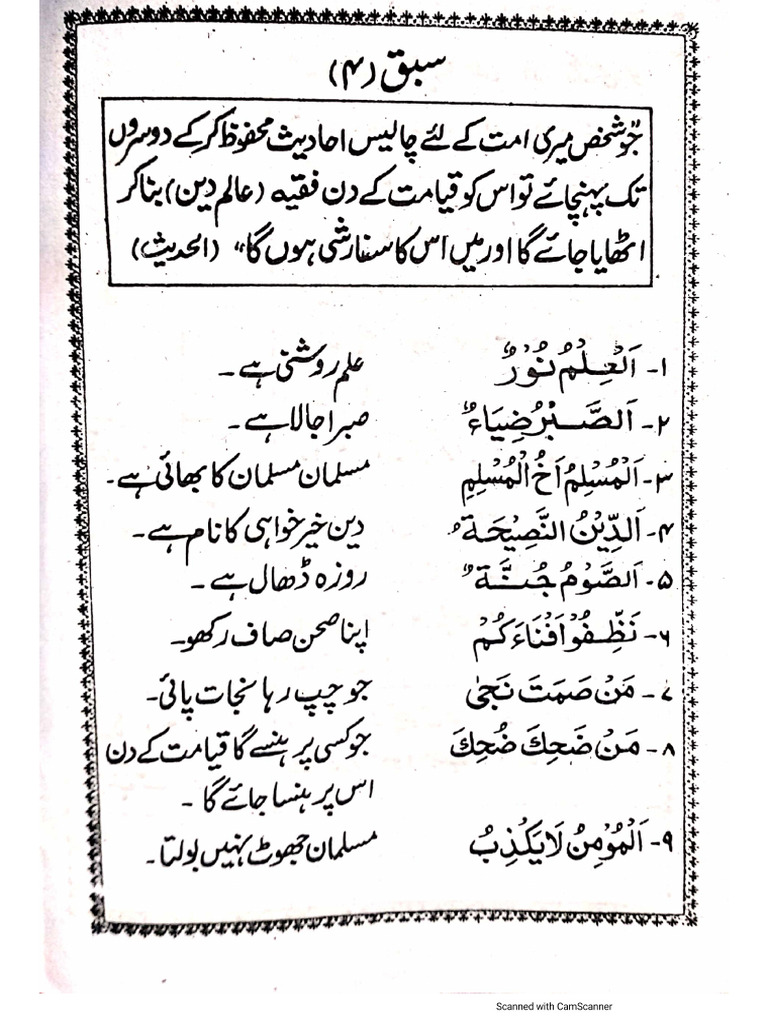 سبق (۴)
"جو شخص میری امت کے لئے چالیس احادیث محفوظ کرکے دوسروں
تک پہنچائے تو اس کو قیامت کے دن فقیہ (عالم دین) بنا کر
اٹھایا جائے گا اور میں اس کا سفارشی ہوں گا" (الحدیث)
۱- اَلْعِلْمُ نُوْرٌ علم روشنی ہے۔
۲- اَلصَّبْرُ ضِيَاءٌ صبر اجالا ہے۔
۳- اَلْمُسْلِمُ اَخُ الْمُسْلِمِ مسلمان مسلمان کا بھائی ہے۔
۴- اَلدِّيْنُ النَّصِيْحَةُ دین خیر خواہی کا نام ہے۔
۵- اَلصَّوْمُ جُنَّةٌ روزہ ڈھال ہے۔
۶- نَظِّفُوْا اَفْنَاءَكُمْ اپنا صحن صاف رکھو۔
۷- مَنْ صَمَتَ نَجٰى جو چپ رہا نجات پائی۔
۸- مَنْ ضَحِكَ ضُحِكَ جو کسی پر ہنسے گا قیامت کے دن
اس پر ہنسا جائے گا۔
۹- اَلْمُؤْمِنُ لَا يَكْذِبُ مسلمان جھوٹ نہیں بولتا۔
Scanned with CamScanner